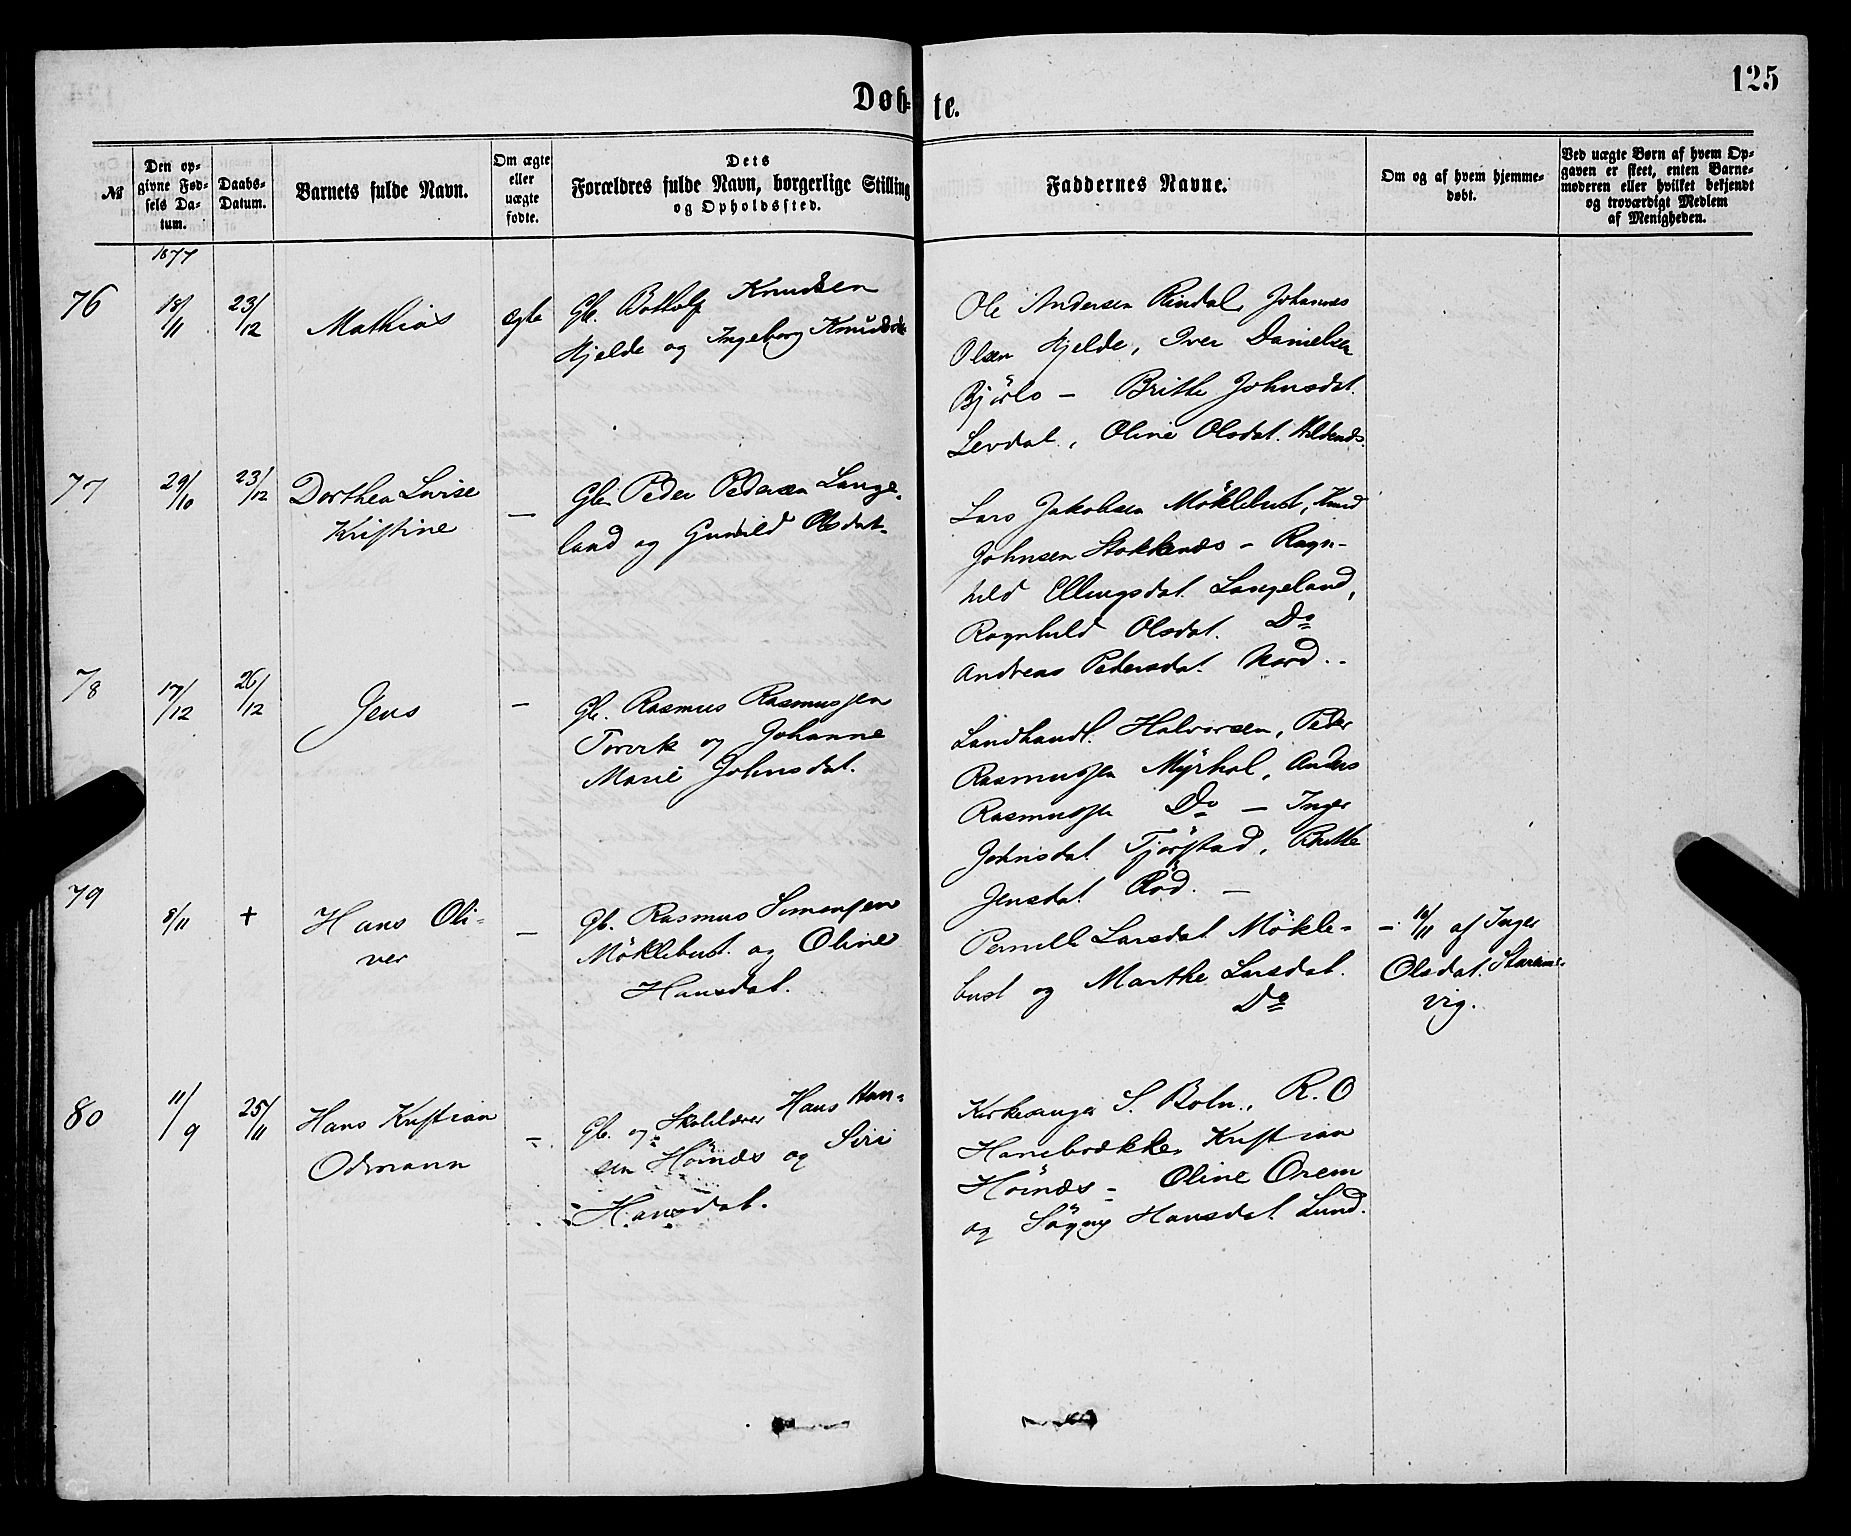 125
Døb- te.
№
Den op-
givne Fød-
sels Da-
tum.
Daabs-
Datum.
Barnets fulde Navn.
Om ægte
eller
uægte
fødte.
Dets
Forældres fulde Navn, borgerlige Stilling
og Opholdssted.
Faddernes Navne.
Om og af hvem hjemme-
døbt.
Ved uægte Børn af hvem Op-
gaven er skeet, enten Barne-
moderen eller hvilket bekjendt
og troværdigt Medlem
af Menigheden.
1877
76
18/11
23/12
Mathias
ægte
Gb. Bottolf Knudsen
Hjelde og Ingeborg
Ole Andersen Rindal, Johannes
Olsen Hjelde, Iver Danielsen
Bjørlo – Brithe Johnsdat.
Levdal, Oline Olsdat.
77
29/10
23/12
Dorthea Lovise
Kristine
–
Gb. Peder Pedersen Lange-
land og Gunild Olsdat.
Lars Jakobsen Möklebust, Knud
Johnsen Stokkenæs – Ragn-
hild Ellingsdat. Langeland,
Ragnhild Olsdat. Do
Andreas Pedersdat. Nord. -
78
17/12
26/12
Jens
–
Gb. Rasmus Rasmussen
Torvik og Johanne
Marie Johnsdat.
Landhandl. Halvorsen, Peder
Rasmussen Myrhol, Anders
Rasmussen Do – Inger
Johnsdat. Tjørstad, Brithe
Jensdat Rød. –
79
8/11
+
Hans Oli-
ver
–
Gb. Rasmus Simensen
Möklebust. og Oline
Hansdat.
Pernille Larsdat. Mökle-
bust og Marthe Larsdat.
Do
–: 10/11 af Inger
Olsdat.
vig.
80
11/9
25/11
Hans Kristian
Odmann
–
Gb. og Skolelærer Hans Han-
sen Höinæs og Siri
Hansdat.
Kirkesanger S. Boln., R. O
Hanebrække, Kristian
Höinæs – Oline Orem
og Sögny Hansdat. Lund.